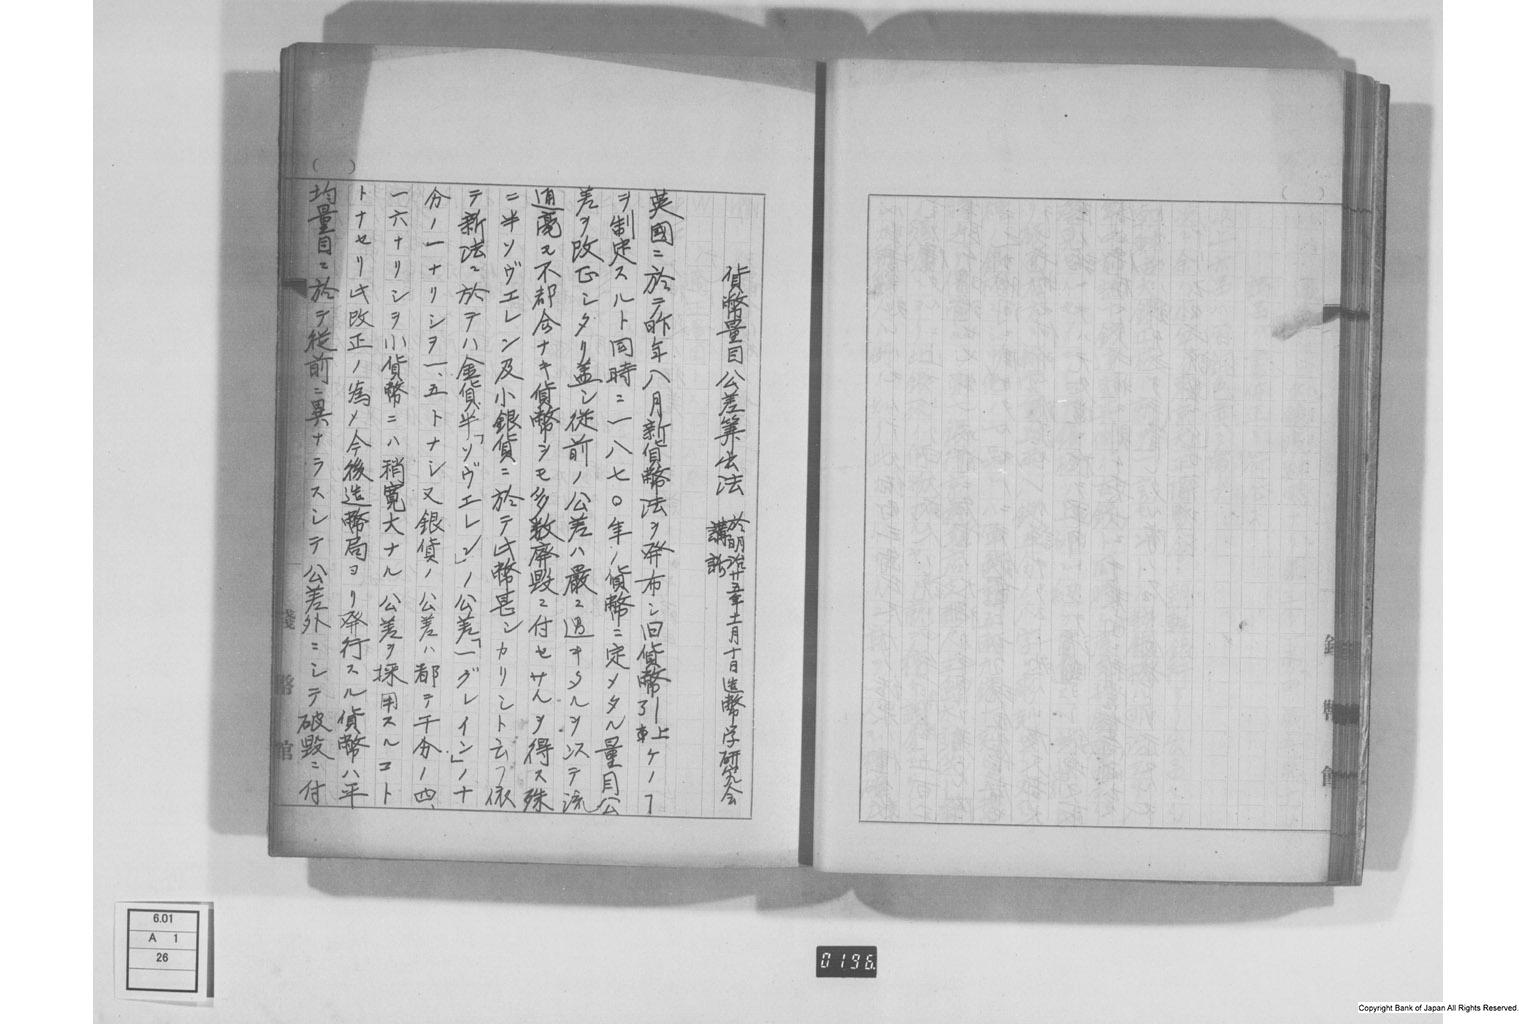 貨幣量目公差算出法
於明治廿五年十一月十日造幣学研究会
講話
英國ニ於テ昨年八月新貨幣法ヲ発布シ旧貨幣引上ケノ
ヲ制定スルト同時ニ一八七〇年ノ貨幣ニ定メタル量目公
差ヲ改正シタリ盖シ従前ノ公差ハ嚴ニ過キタルヲ以テ流
通毫モ不都合ナキ貨幣ヲモ多数廃毀ニ付セサルヲ得ス殊
ニ半ソヴエレン及小銀貨ニ於テ此幣甚シカリシト云フ依
テ新法ニ於テハ金貨半「ソヴエレン」ノ公差「一グレイン」ノ十
分ノ一ナリシヲ一、五トナシ又銀貨ノ公差ハ都テ千分ノ四、
一六ナリシヲ小貨幣ニハ稍寛大ナル公差ヲ採用スルコト
トナセリ此改正ノ為メ今後造幣局ヨリ発行スル貨幣ハ平
均量目ニ於テ従前ニ異ナラスシテ公差外ニシテ破毀ニ付
( )
錢幣館
( )
錢幣館
6.01
A 1
26
0196
Copyright Bank of Japan All Rights Reserved.